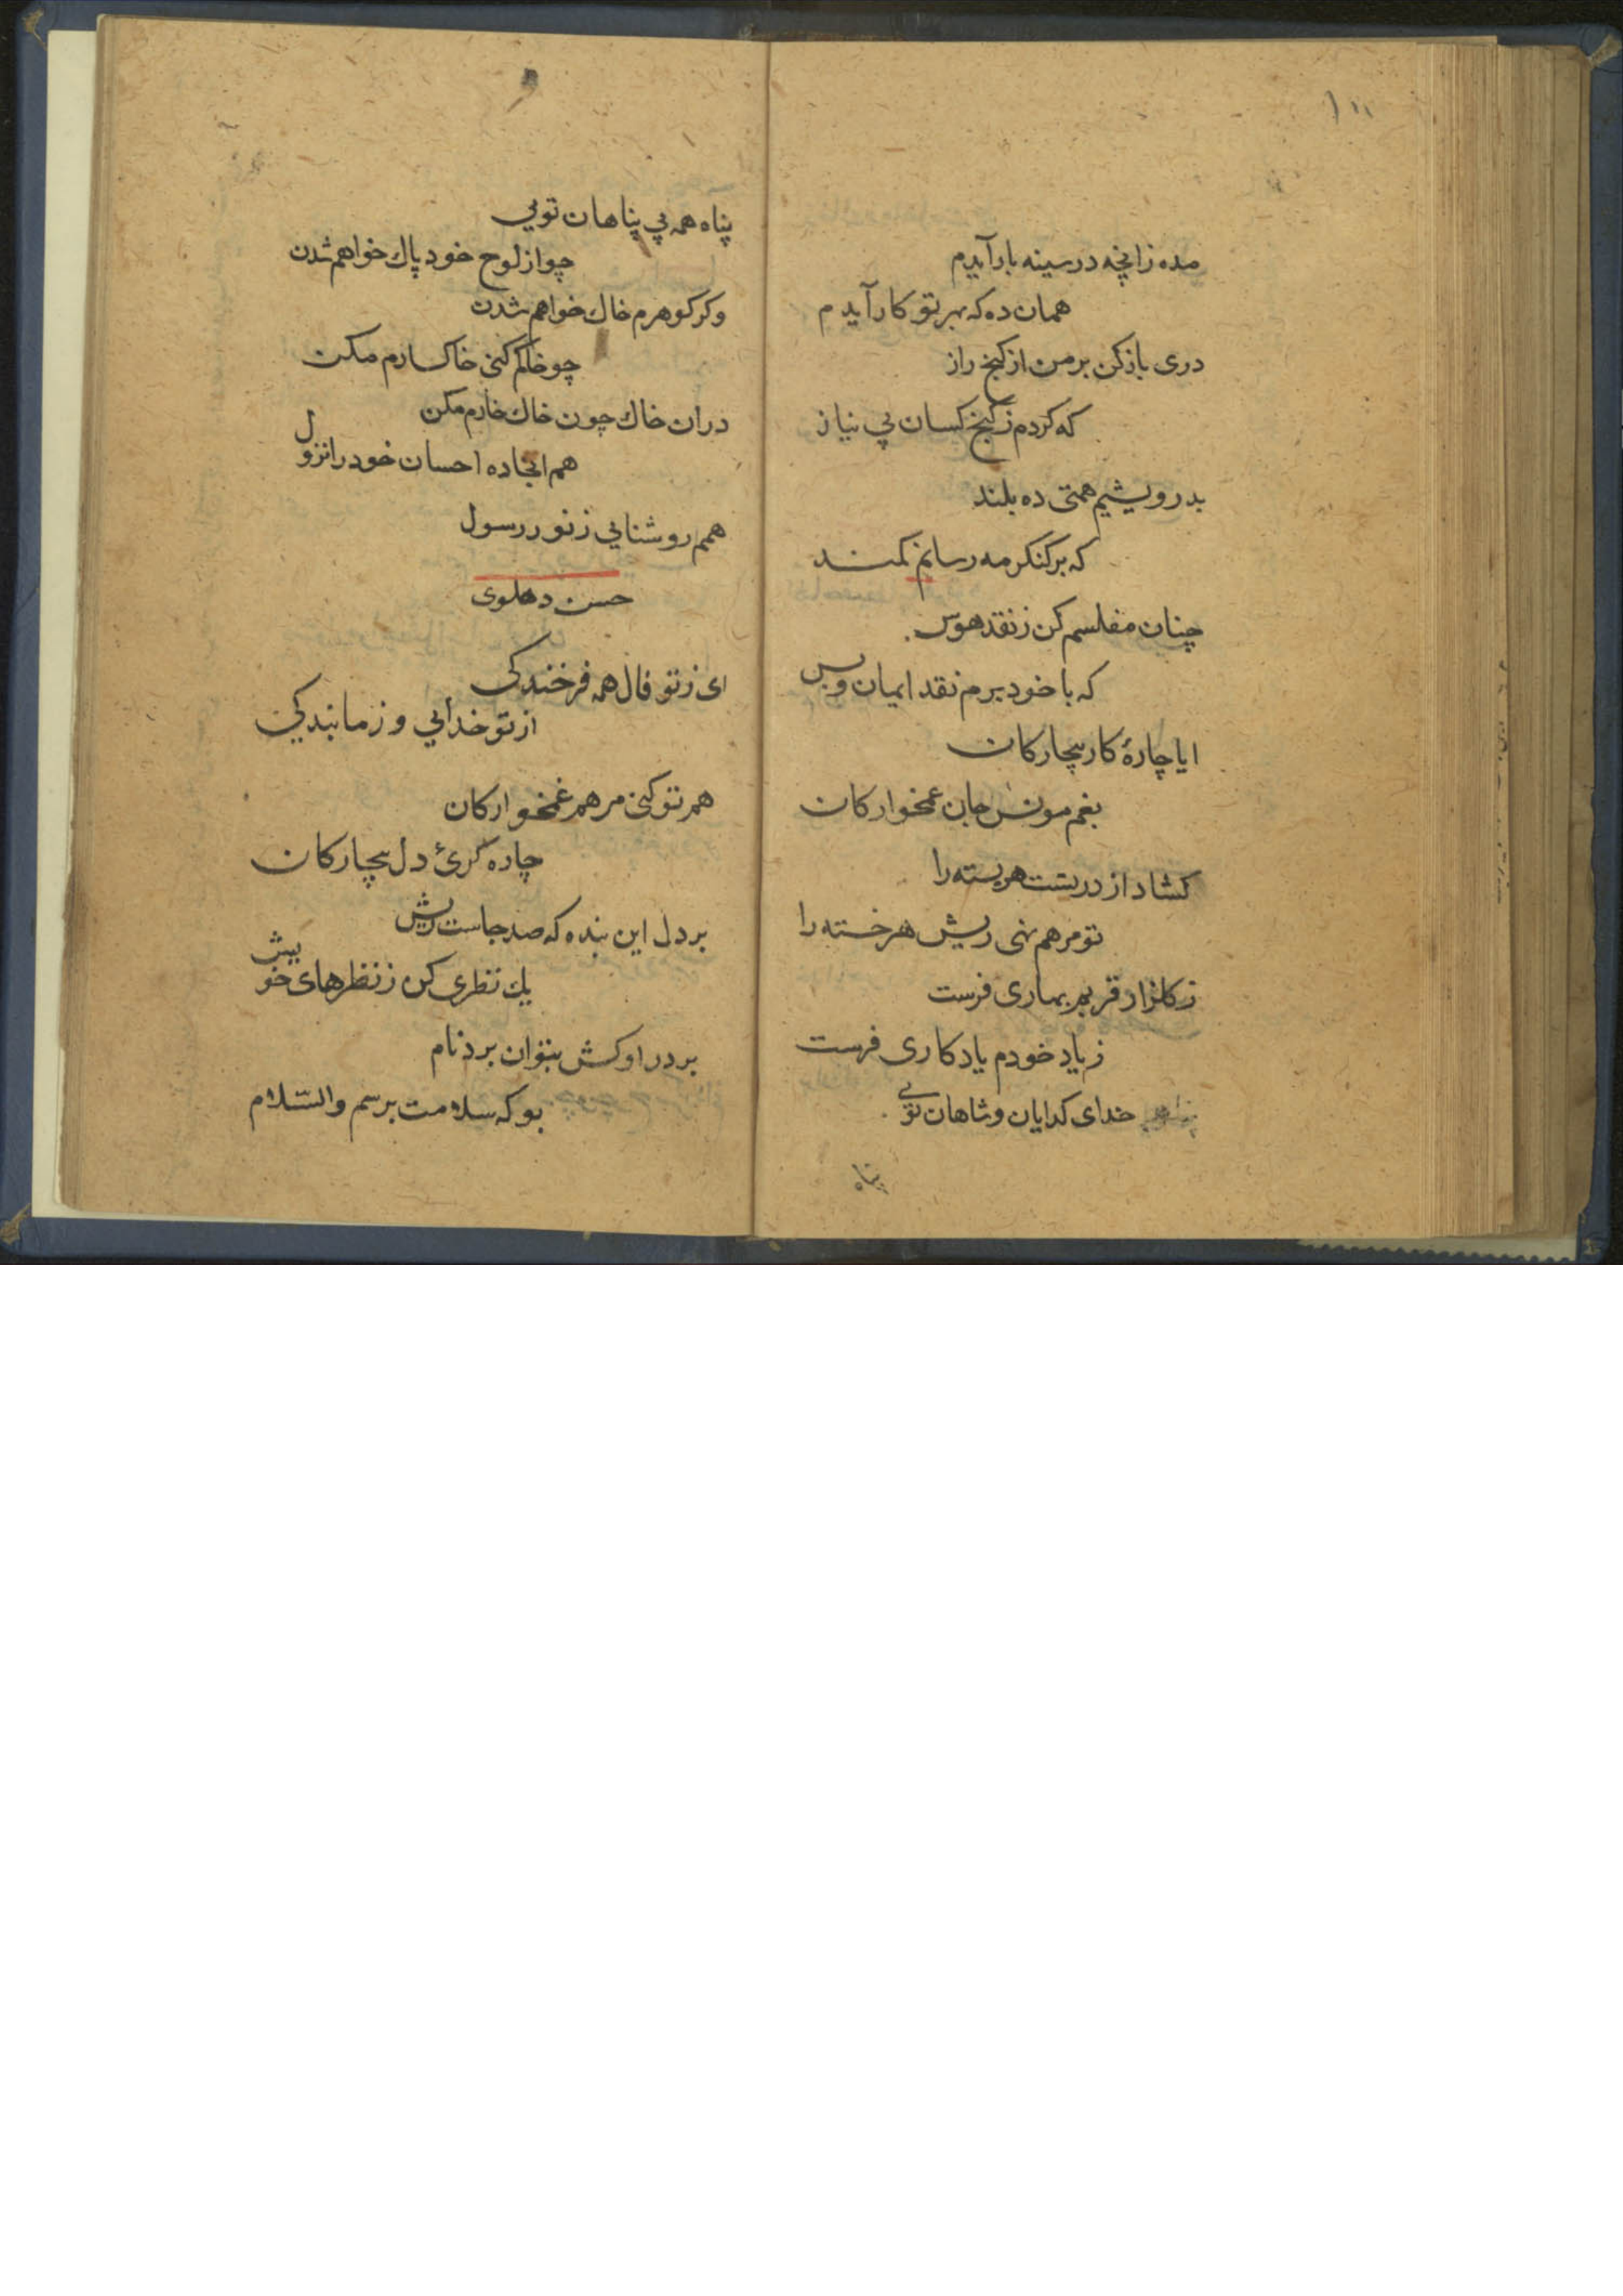 مده زانچه در سینه بار آیدم
همان ده که بهر تو کار آیدم
دری باز کن بر من از کنج راز
که کردم ز کنج کسان بی نیاز
بدرویشیم همتی ده بلند
که بر کنکر مه رسانم کمند
چنان مفلسم کن ز نقد هوس
که با خود برم نقد ایمان و بس
ایا چارهٔ کار بیچارکان
بغم مونس جان غمخوارکان
کشاد از در تست هر بسته را
تو مرهم نهی ریش هر خسته را
ز کلزار قربم بهاری فرست
ز یاد خودم یادکاری فرست
خدای کدایان و شاهان تویی
پناه
پناه همه بی پناهان تویی
چو از لوح خود پاك خواهم شدن
وکر کوهرم خاك خواهم شدن
چو خاکم کنی خاکسارم مکن
در ان خاك چون خاك خارم مکن
هم انجا ده احسان خود را نزول
همم روشنایی ز نور رسول
حسن دهلوی
ای ز تو فال همه فرخندکی
از تو خدایی و ز ما بندکی
هم تو کنی مرهم غمخوارکان
چاره کریٔ دل بیچارکان
بر دل این بنده که صد جاست ریش
یك نظری کن ز نظرهای خویش
بر در او کش بتوان برد نام
بو که سلامت برسم والسّلام